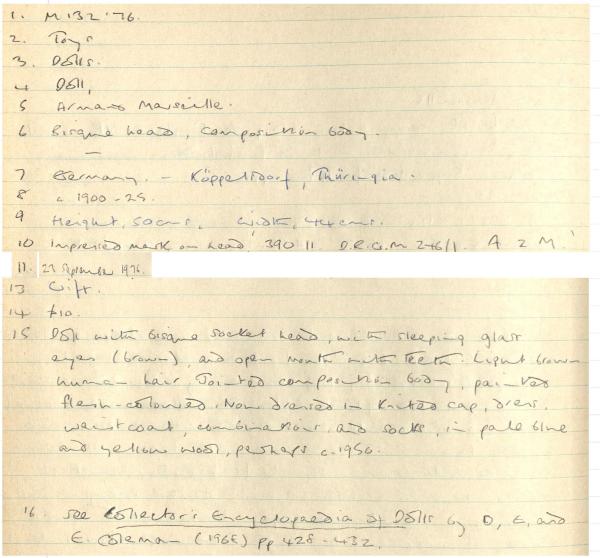 1. M132.'76.
2. Toys
3. Dolls.
4 Doll,
5 Armand Marseille.
6 Bisque head, composition body.
—
7 Germany. – Köppelsdorf, Thüringia.
8 c. 1900 - 25.
9 Height, 50cms, width, 44cms.
10 Impressed mark on head '390 11 D.R.G.M 246/1. A 2 M.'
11. 23 September 1976.
13 Gift.
14 £10.
15 Doll with bisque socket head, with sleeping glass
eyes (brown), and open mouth with teeth. Light brown
human hair. Jointed composition body, painted
flesh-coloured. Now dressed in knitted cap, dress,
waistcoat, combinations, and socks, in pale blue
and yellow wool, perhaps c.1950.
16. See Collector's Encyclopaedia of Dolls by D, E, and
E. Coleman (1968) pp 428-432.